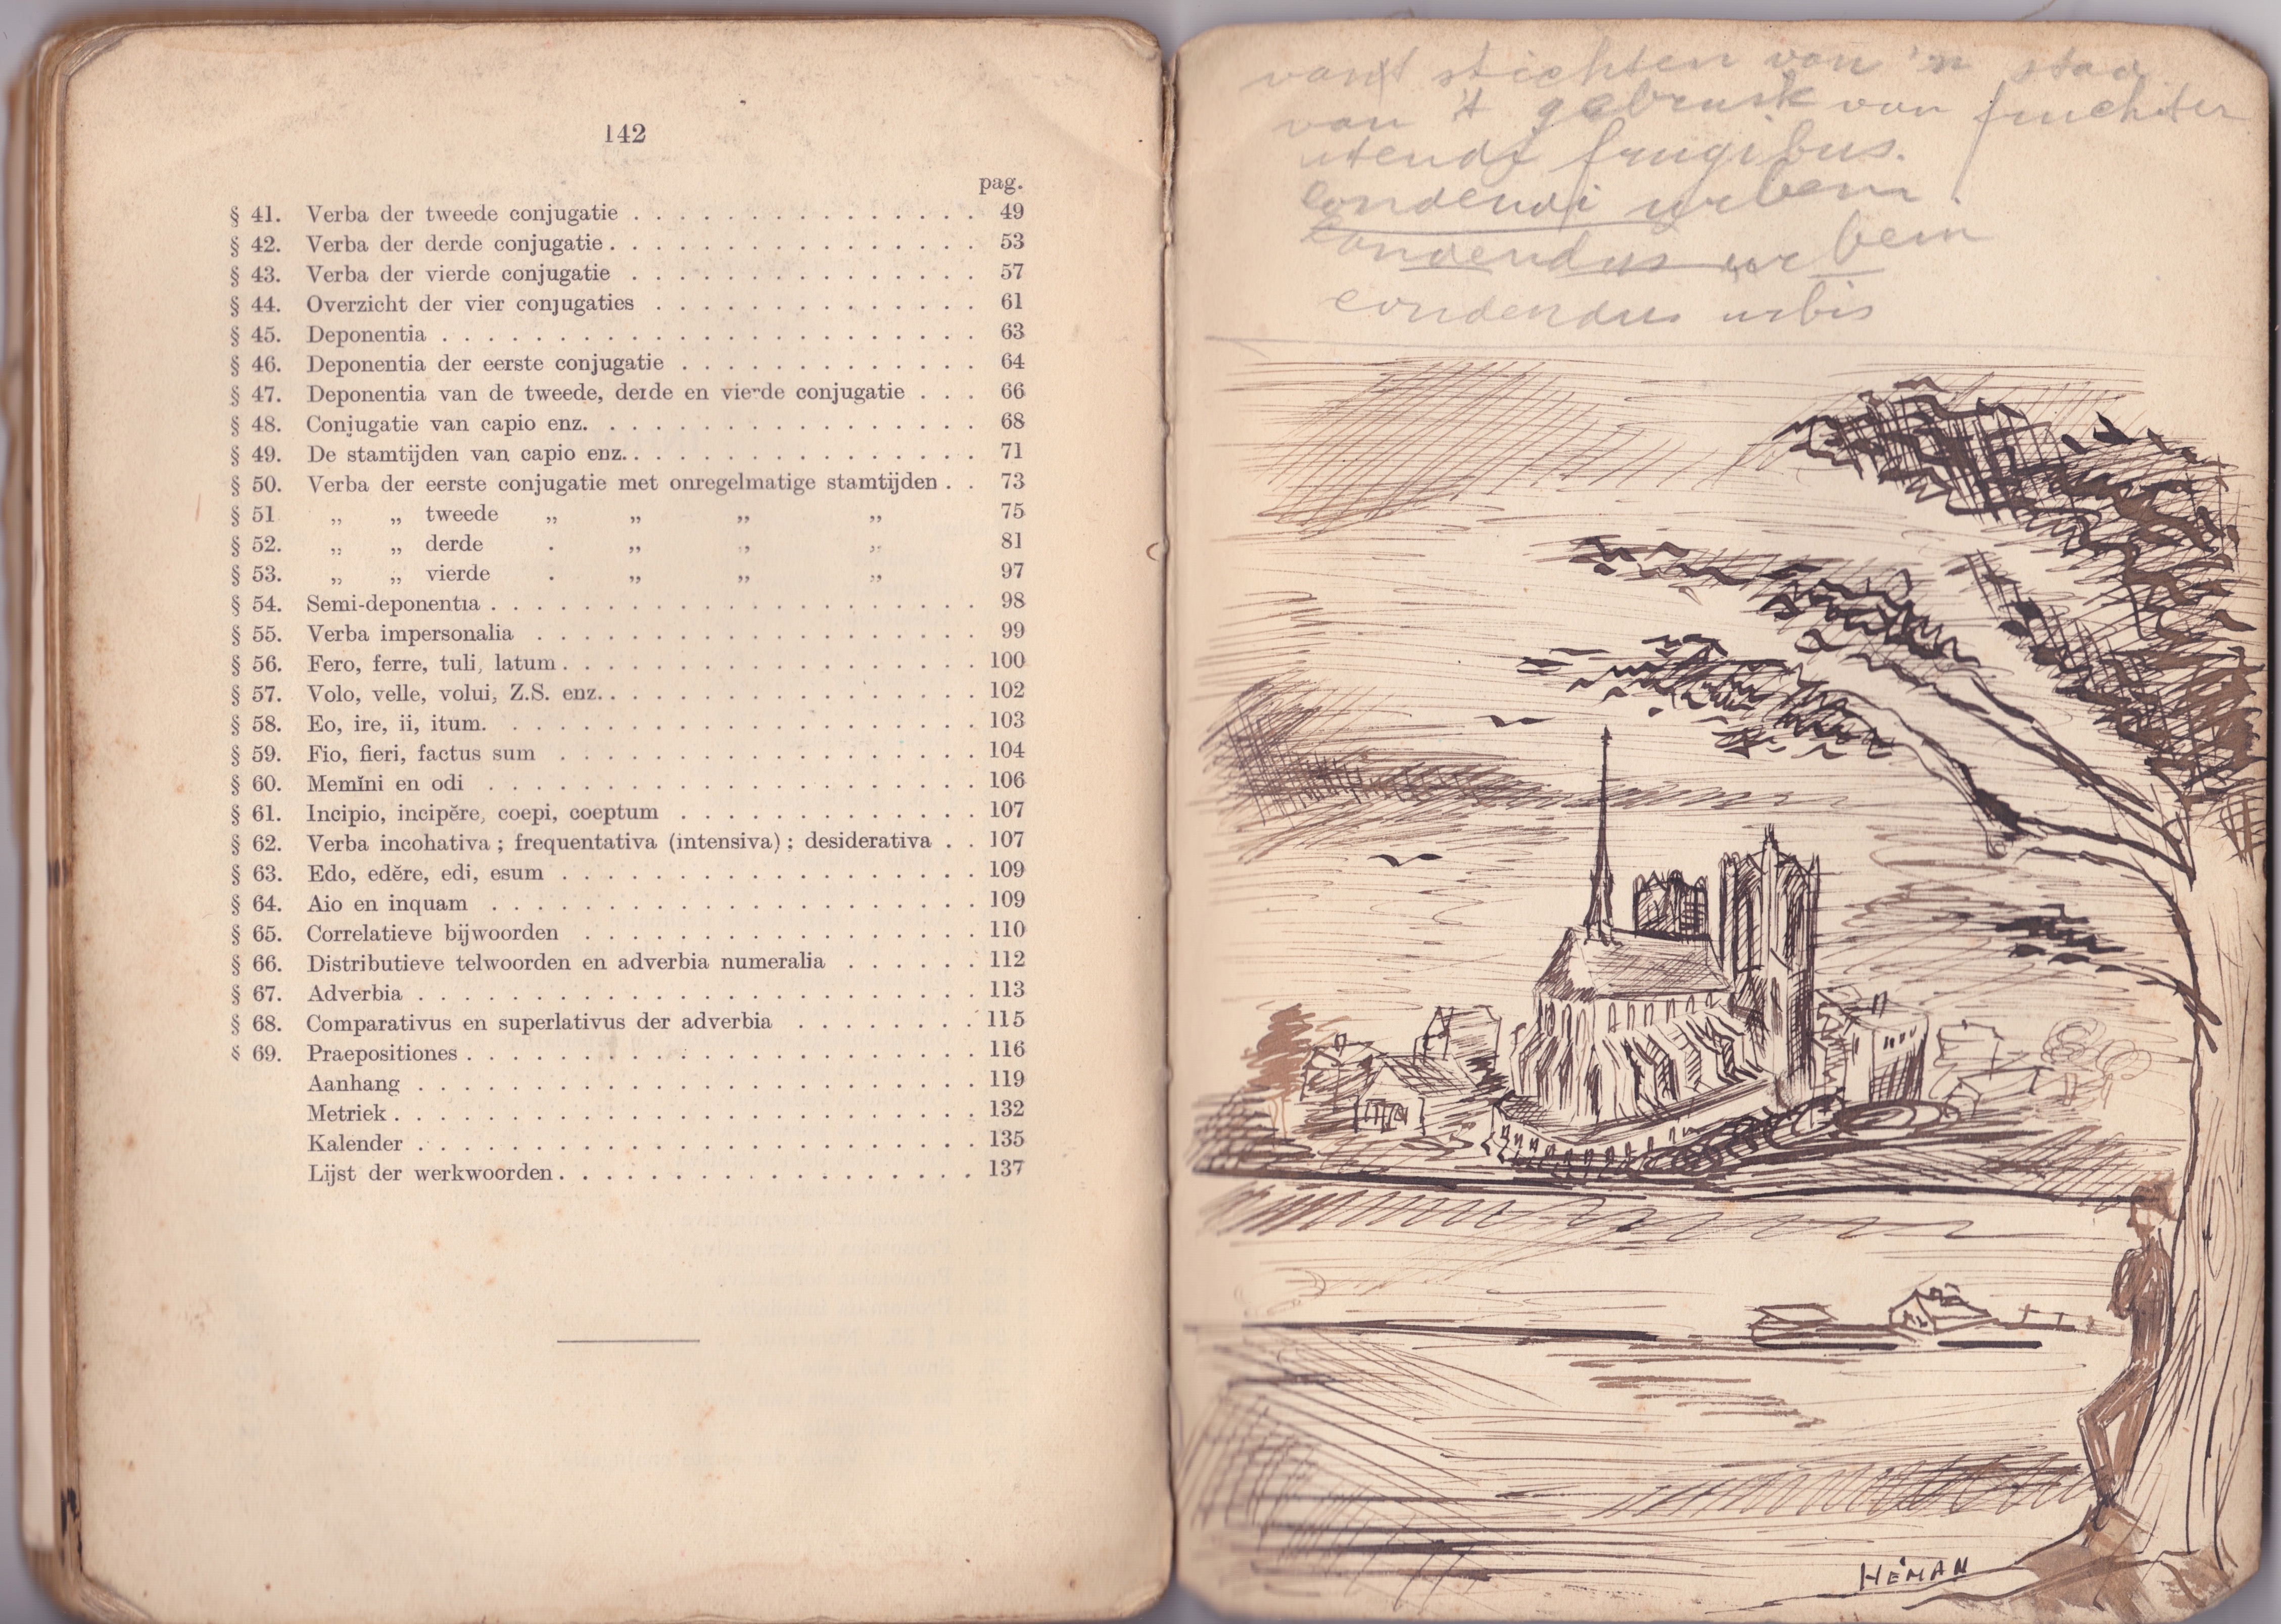 142
pag.
§ 41. Verba der tweede conjugatie . . . . . . . . . . . . . . . 49
§ 42. Verba der derde conjugatie . . . . . . . . . . . . . . . . 53
§ 43. Verba der vierde conjugatie . . . . . . . . . . . . . . . 57
§ 44. Overzicht der vier conjugaties . . . . . . . . . . . . . . 61
§ 45. Deponentia . . . . . . . . . . . . . . . . . . . . . . 63
§ 46. Deponentia der eerste conjugatie . . . . . . . . . . . . . 64
§ 47. Deponentia van de tweede, derde en vierde conjugatie . . . 66
§ 48. Conjugatie van capio enz. . . . . . . . . . . . . . . . . 68
§ 49. De stamtijden van capio enz. . . . . . . . . . . . . . . . 71
§ 50. Verba der eerste conjugatie met onregelmatige stamtijden . . 73
§ 51 „ „ tweede „ „ „ „ 75
§ 52. „ „ derde . „ „ „ 81
§ 53. „ „ vierde . „ „ „ 97
§ 54. Semi-deponentia . . . . . . . . . . . . . . . . . . . . 98
§ 55. Verba impersonalia . . . . . . . . . . . . . . . . . . 99
§ 56. Fero, ferre, tuli, latum . . . . . . . . . . . . . . . . . . 100
§ 57. Volo, velle, volui, Z.S. enz. . . . . . . . . . . . . . . . . 102
§ 58. Eo, ire, ii, itum. . . . . . . . . . . . . . . . . . . . 103
§ 59. Fio, fieri, factus sum . . . . . . . . . . . . . . . . . . 104
§ 60. Memĭni en odi . . . . . . . . . . . . . . . . . . . . 106
§ 61. Incipio, incipĕre, coepi, coeptum . . . . . . . . . . . . . 107
§ 62. Verba incohativa ; frequentativa (intensiva) ; desiderativa . . 107
§ 63. Edo, edĕre, edi, esum . . . . . . . . . . . . . . . . . . 109
§ 64. Aio en inquam . . . . . . . . . . . . . . . . . . . . 109
§ 65. Correlatieve bijwoorden . . . . . . . . . . . . . . . . . 110
§ 66. Distributieve telwoorden en adverbia numeralia . . . . . . 112
§ 67. Adverbia . . . . . . . . . . . . . . . . . . . . . . . 113
§ 68. Comparativus en superlativus der adverbia . . . . . . . . 115
§ 69. Praepositiones . . . . . . . . . . . . . . . . . . . . . 116
Aanhang . . . . . . . . . . . . . . . . . . . . . . . 119
Metriek . . . . . . . . . . . . . . . . . . . . . . . . 132
Kalender . . . . . . . . . . . . . . . . . . . . . . . 135
Lijst der werkwoorden . . . . . . . . . . . . . . . . . . 137
stichten van 'n
van 't gebruik van
utendi frugibus.
condendi urbem.
condendus urbem
condendus urbis
HÉMAN